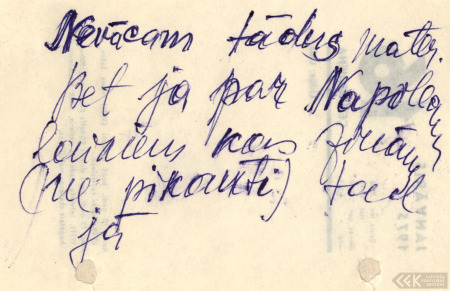 Nevācam tādus mater.
Bet ja par Napoleonu
laikiem kas zināms
(ne pikanti) tad
jā